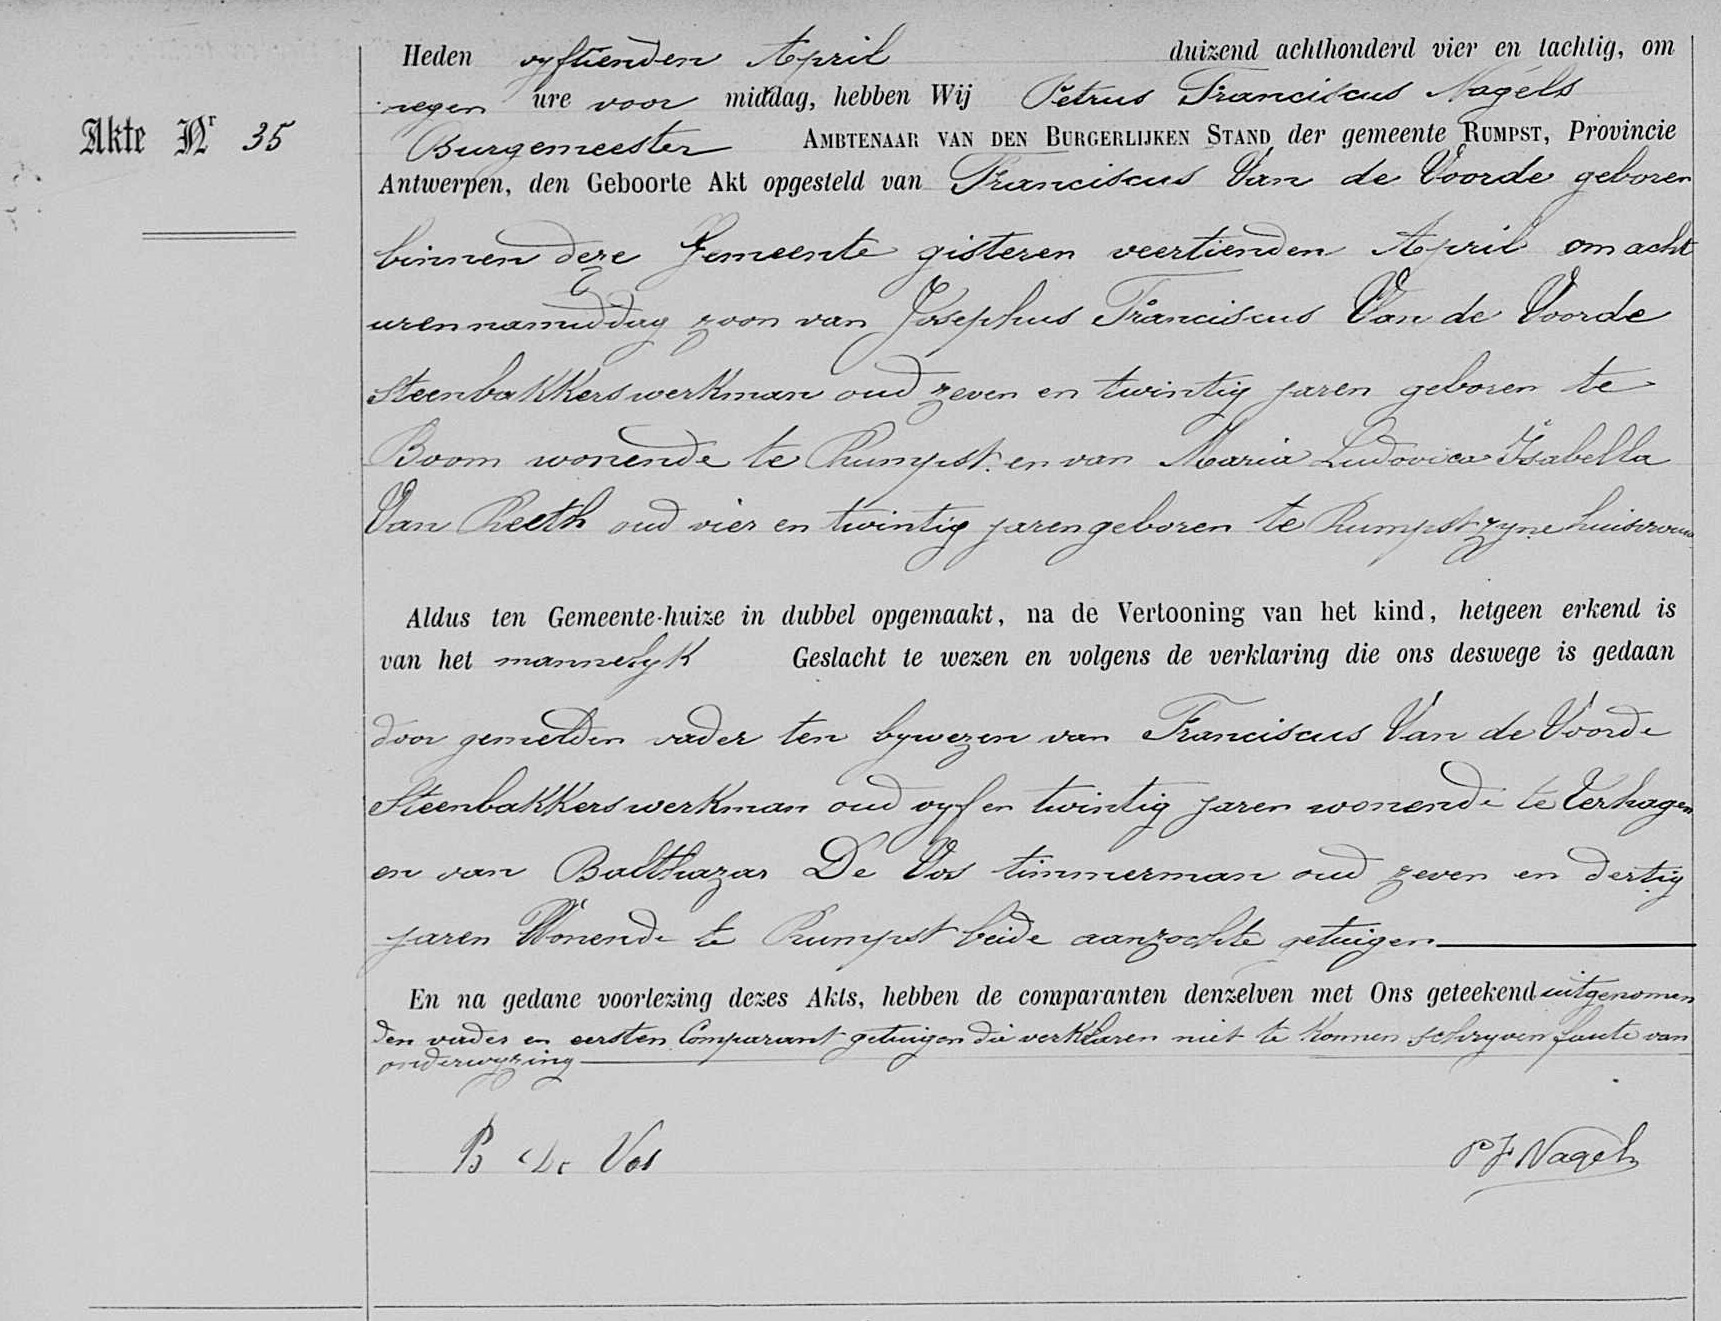 Heden vyftienden April duizend achthonderd vier en tachtig, om
negen ure voor middag, hebben Wij Petrus Franciscus Nagels
Akte Nr 35
Burgemeester AMBTENAAR VAN DEN BURGERLIJKEN STAND der gemeente RUMPST, Provincie
Antwerpen, den Geboorte Akt opgesteld van Franciscus Van de Voorde geboren
binnen deze Gemeente gisteren veertienden April om acht
uren namiddag zoon van Josephus Franciscus Van de Voorde
steenbakkerswerkman oud zeven en twintig jaren geboren te
Boom wonende te Rumpst. en van Maria Ludovica Isabella
Van Reeth oud vier en twintig jaren geboren te Rumpst zyne huisvrouw
Aldus ten Gemeente-huize in dubbel opgemaakt, na de Vertooning van het kind, hetgeen erkend is
van het mannelyk Geslacht te wezen en volgens de verklaring die ons deswege is gedaan
door gemelden vader ten bywezen van Franciscus Van de Voorde
Steenbakkerswerkman oud vyf en twintig jaren wonende te Terhagen
en van Balthazar De Vos timmerman oud zeven en dertig
jaren Wonende te Rumpst beide aanzochte getuigen
En na gedane voorlezing dezes Akts, hebben de comparanten denzelven met Ons geteekend uitgenomen
den vader en eersten Comparant getuigen die verklaren niet te konnen schryven faute van
onderwyzing
B De Vos P F Nagels